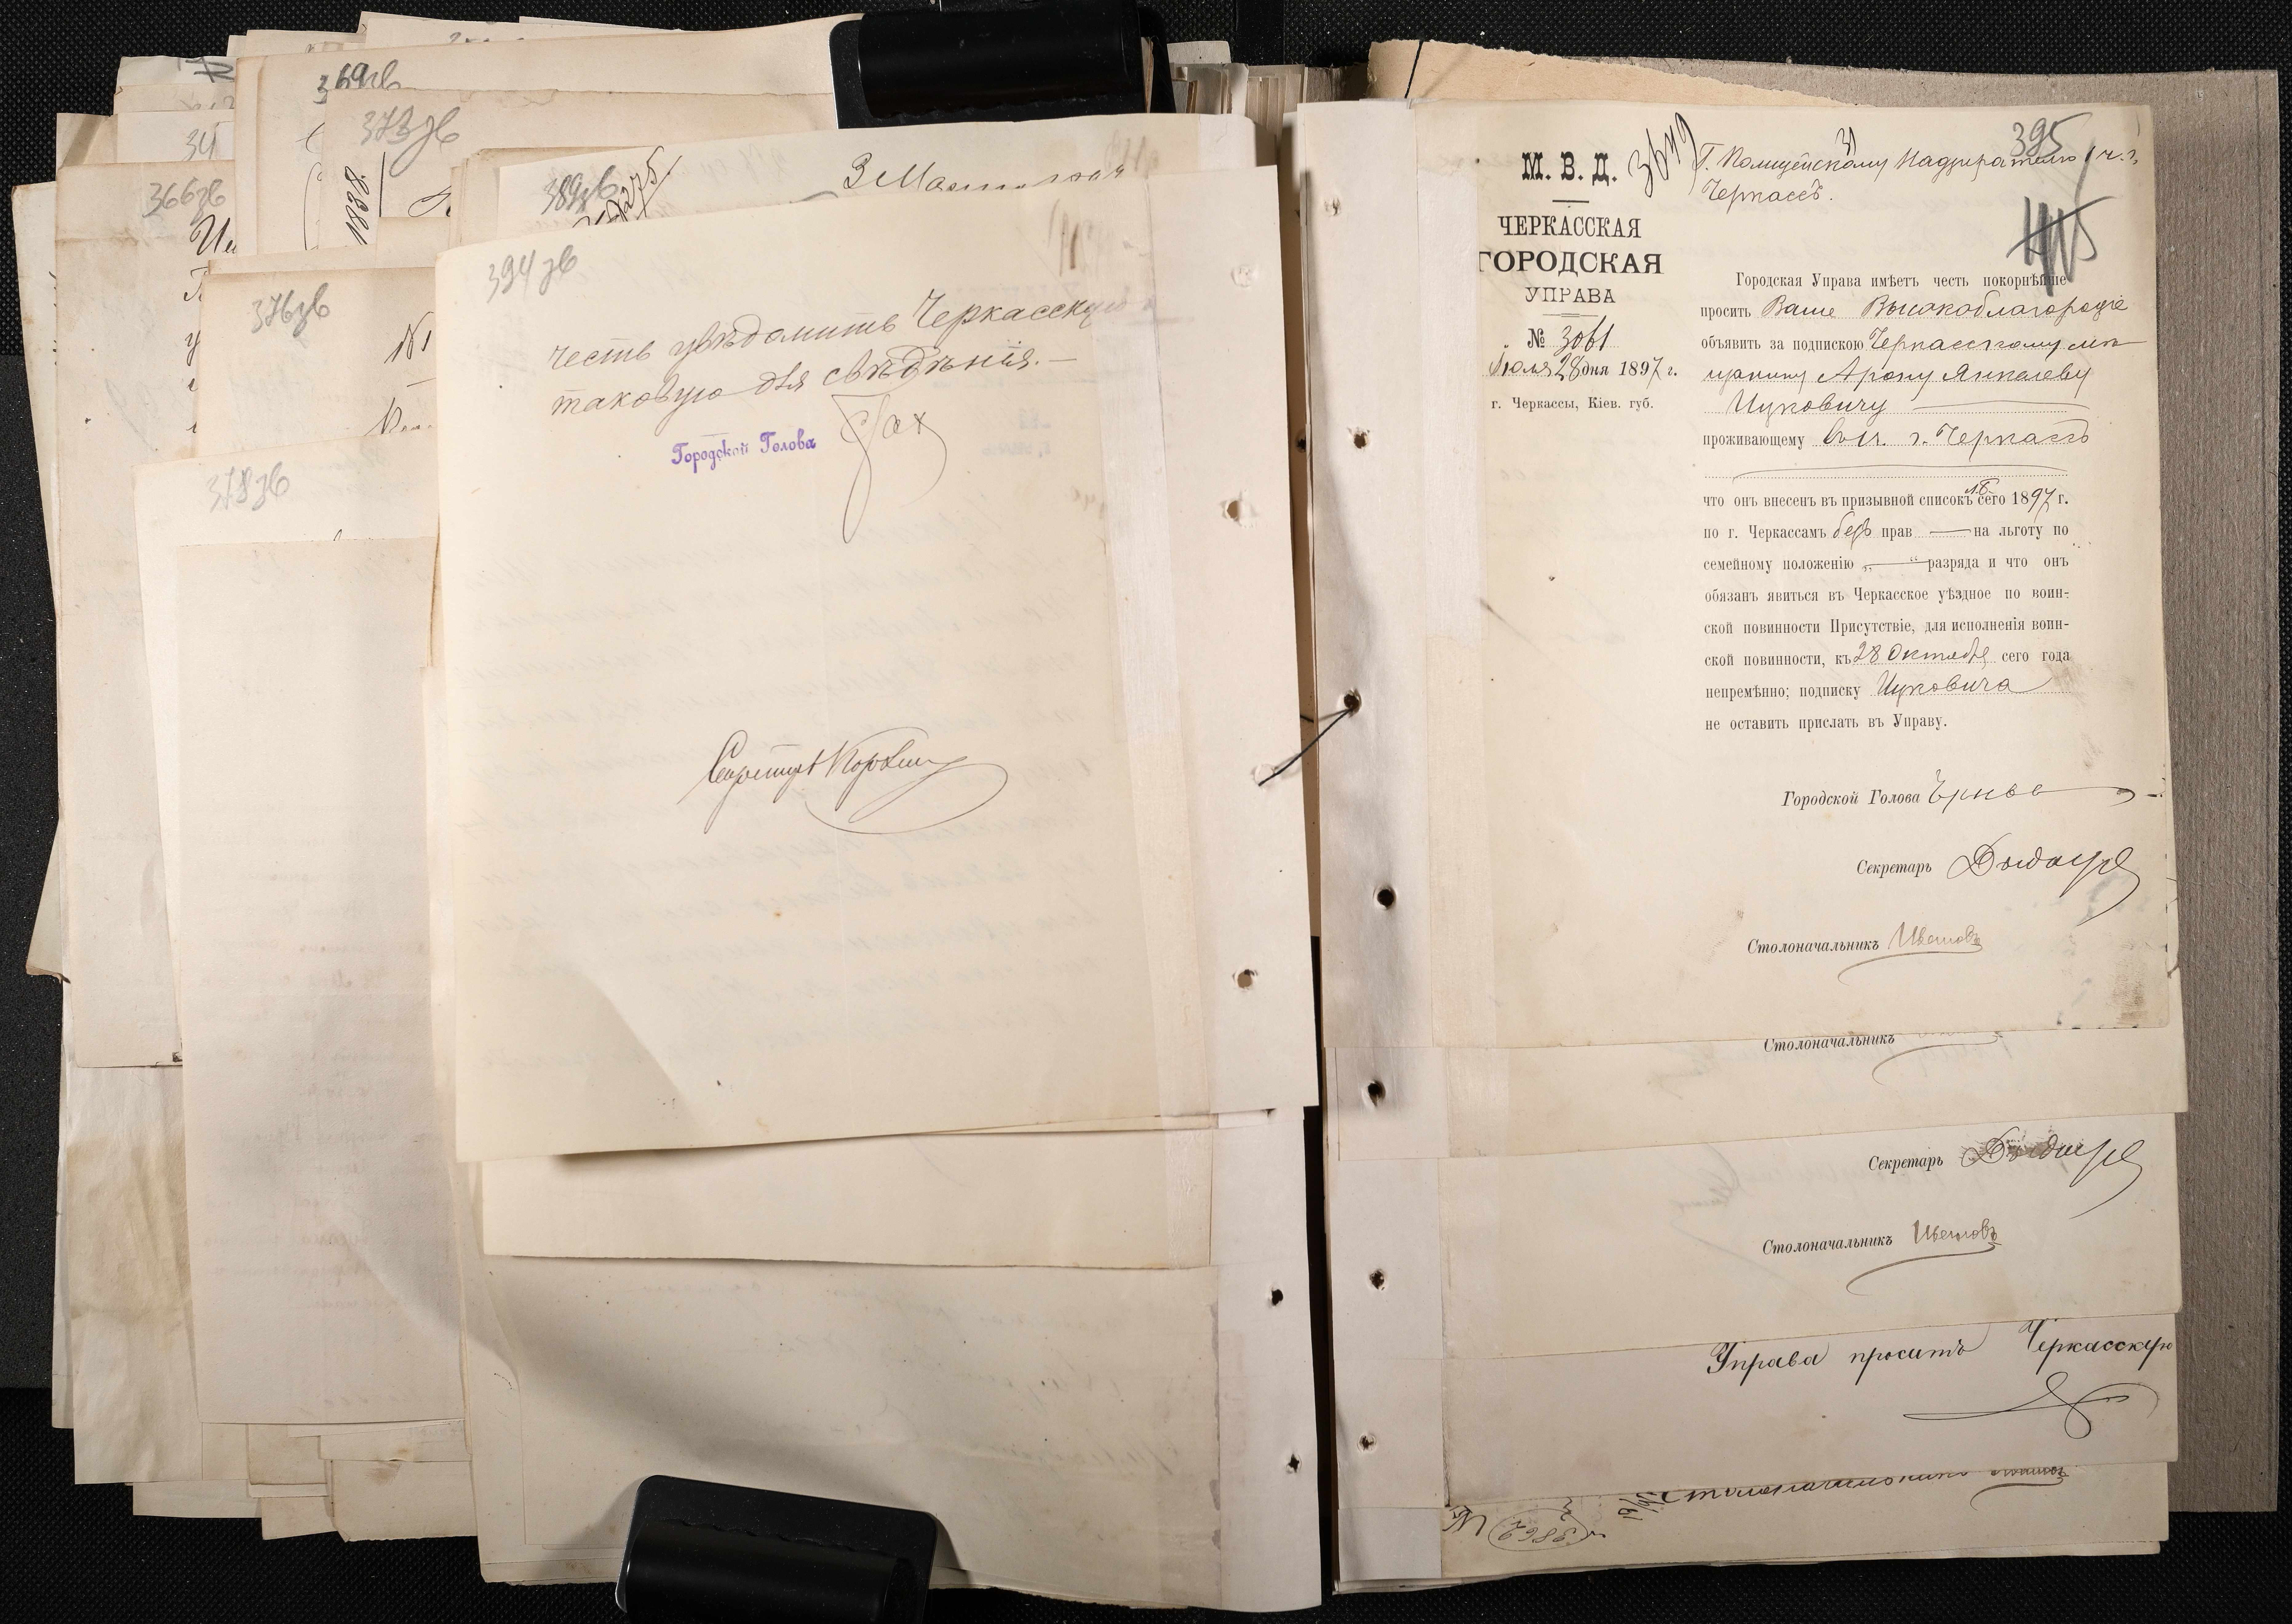 369зв
373зв
34
366зв
376зв
378зв
389зв
275
394зв
честь увѣдомить Черкасскую
таковую для свѣдѣнія.—
Городской Голова
Секретарь
395
3649
Г. Полицейскому Надзирателю 1 ч. г.
Черкассъ.
М. В. Д.
ЧЕРКАССКАЯ
ГОРОДСКАЯ
УПРАВА
№ 3061
Іюля 28 дня 1897 г.
г. Черкассы, Кіев. губ.
Городская Управа имѣетъ честь покорнѣйше
просить Ваше Высокоблагородіе
объявить за подпискою Черкасскому мѣ-
щанину Арону Янкелеву
Цуковичу
проживающему въ 1 ч. г. Черкассъ
что онъ внесенъ въ призывной списокъ сего 1897 г.
по г. Черкассамъ безъ прав — на льготу по
семейному положенію „—“ разряда и что онъ
обязанъ явиться въ Черкасское уѣздное по воин-
ской повинности Присутствіе, для исполненія воин-
ской повинности, къ 28 Октября сего года
непремѣнно; подписку Цуковича
не оставить прислать въ Управу.
Городской Голова
Секретарь
Столоначальникъ
Столоначальникъ
Секретарь
Столоначальникъ
Управа проситъ Черкасскую
Столоначальникъ